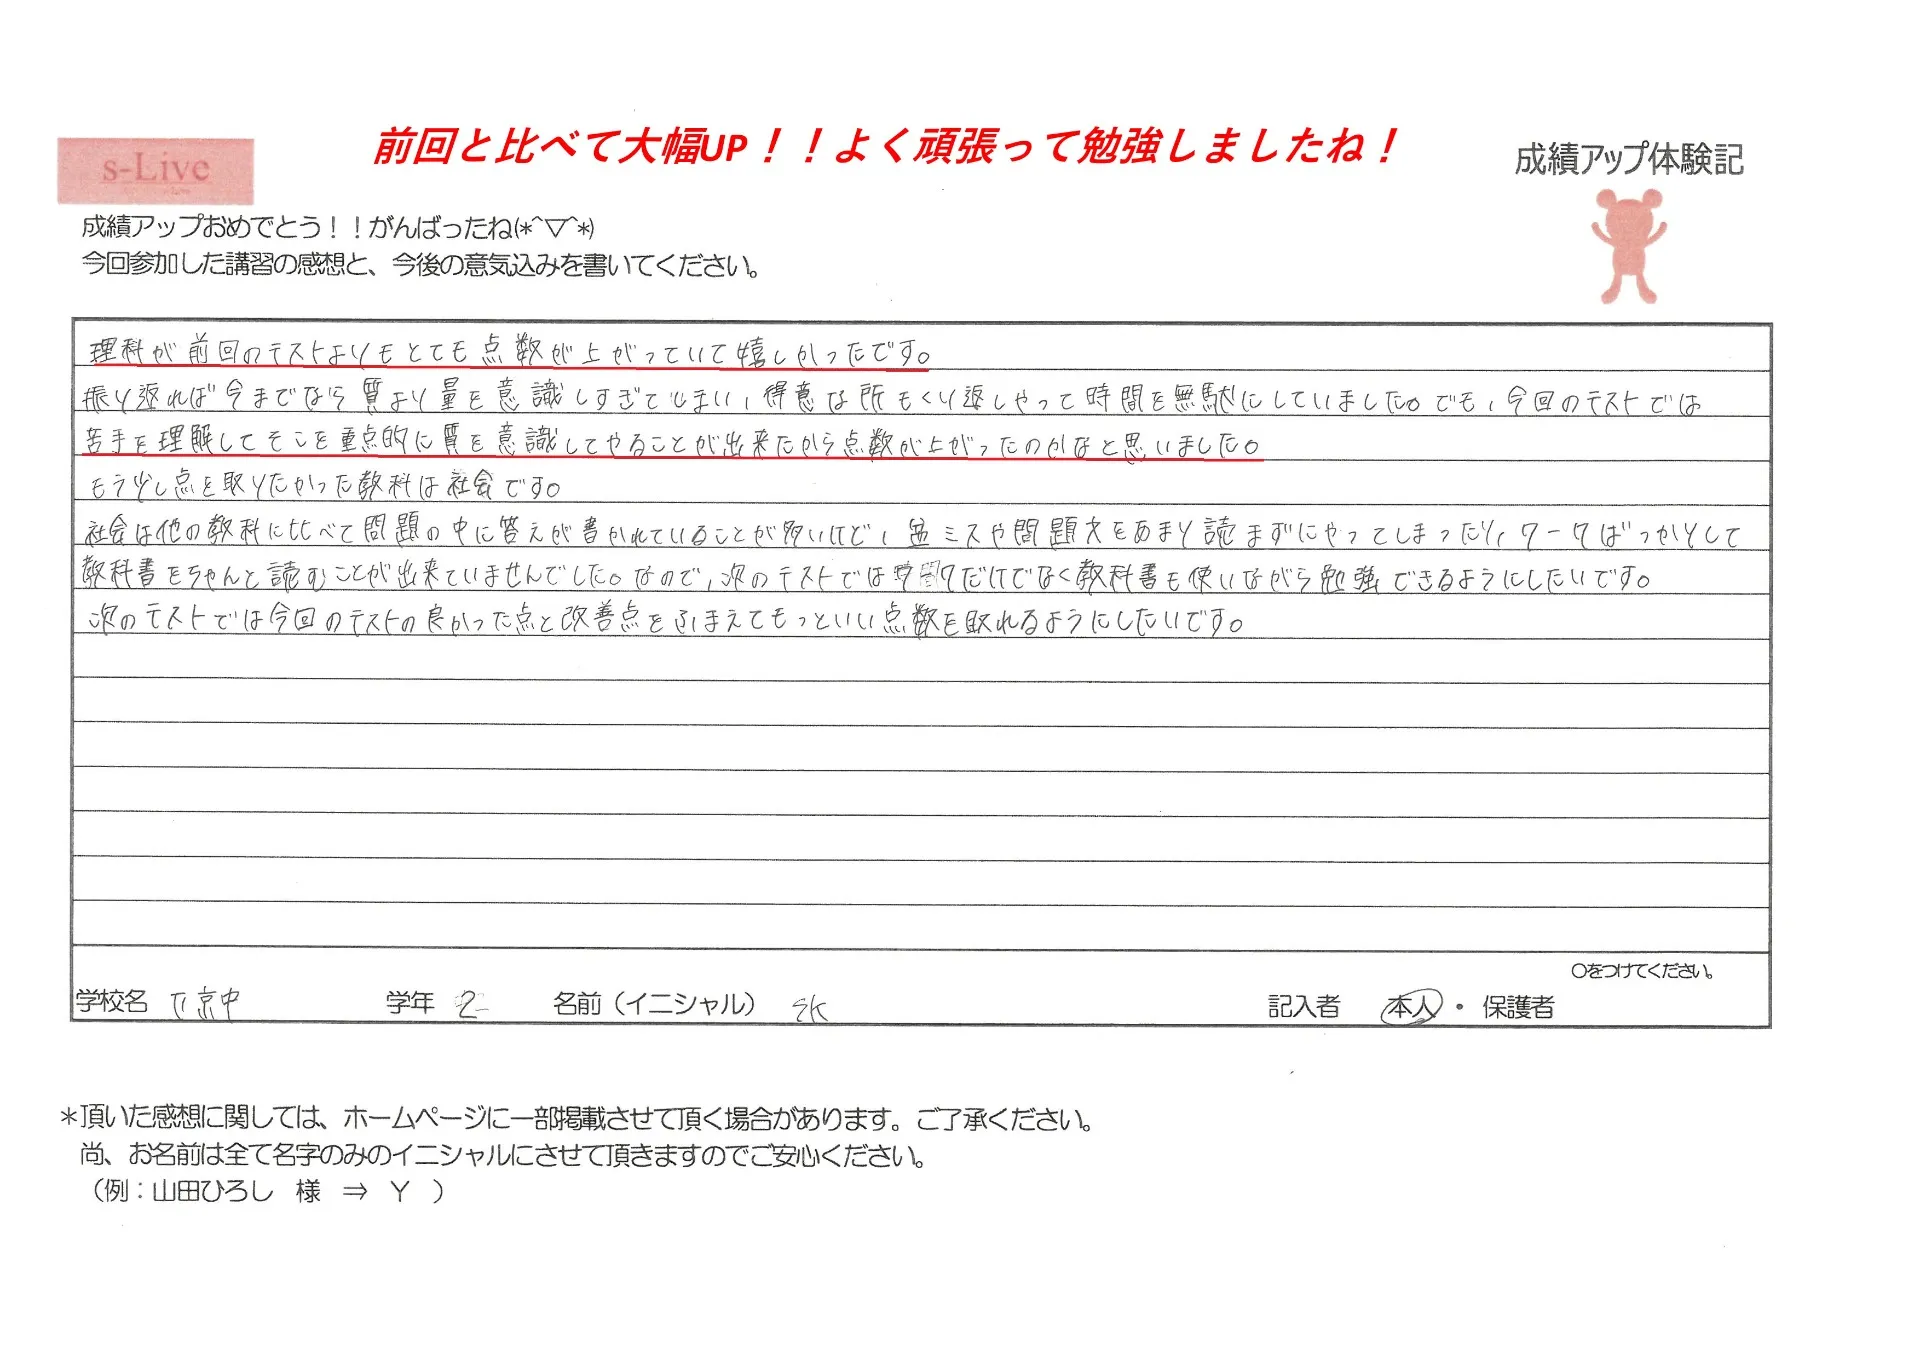 前回と比べて大幅UP！！よく頑張って勉強しましたね！
s-Live
成績アップ体験記
成績アップおめでとう！！がんばったね(*^▽^*)
今回参加した講習の感想と、今後の意気込みを書いてください。
理科が前回のテストよりもとても点数が上がっていて嬉しかったです。
振り返れば今までなら質より量を意識しすぎてしまい、得意な所もくり返しやって時間を無駄にしていました。でも、今回のテストでは
苦手を理解してそこを重点的に質を意識してやることが出来たから点数が上がったのかなと思いました。
もう少し点を取りたかった教科は社会です。
社会は他の教科に比べて問題の中に答えが書かれていることが多いけど、ミスや問題文をあまり読まずにやってしまったり、ワークばっかりして
教科書をちゃんと読むことが出来ていませんでした。なので、次のテストではだけでなく教科書も使いながら勉強できるようにしたいです。
次のテストでは今回のテストの良かった点と改善点をふまえてもっといい点数を取れるようにしたいです。
○をつけてください。
学校名 京中 学年 2 名前（イニシャル） 記入者 本人・保護者
＊頂いた感想に関しては、ホームページに一部掲載させて頂く場合があります。ご了承ください。
尚、お名前は全て名字のみのイニシャルにさせて頂きますのでご安心ください。
（例：山田ひろし 様 ⇒ Y ）